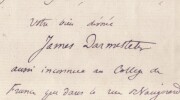 Votre bien dévoué
James Darmesteter
aussi inconnu au Collège de
France que dans la rue de Vaugirard